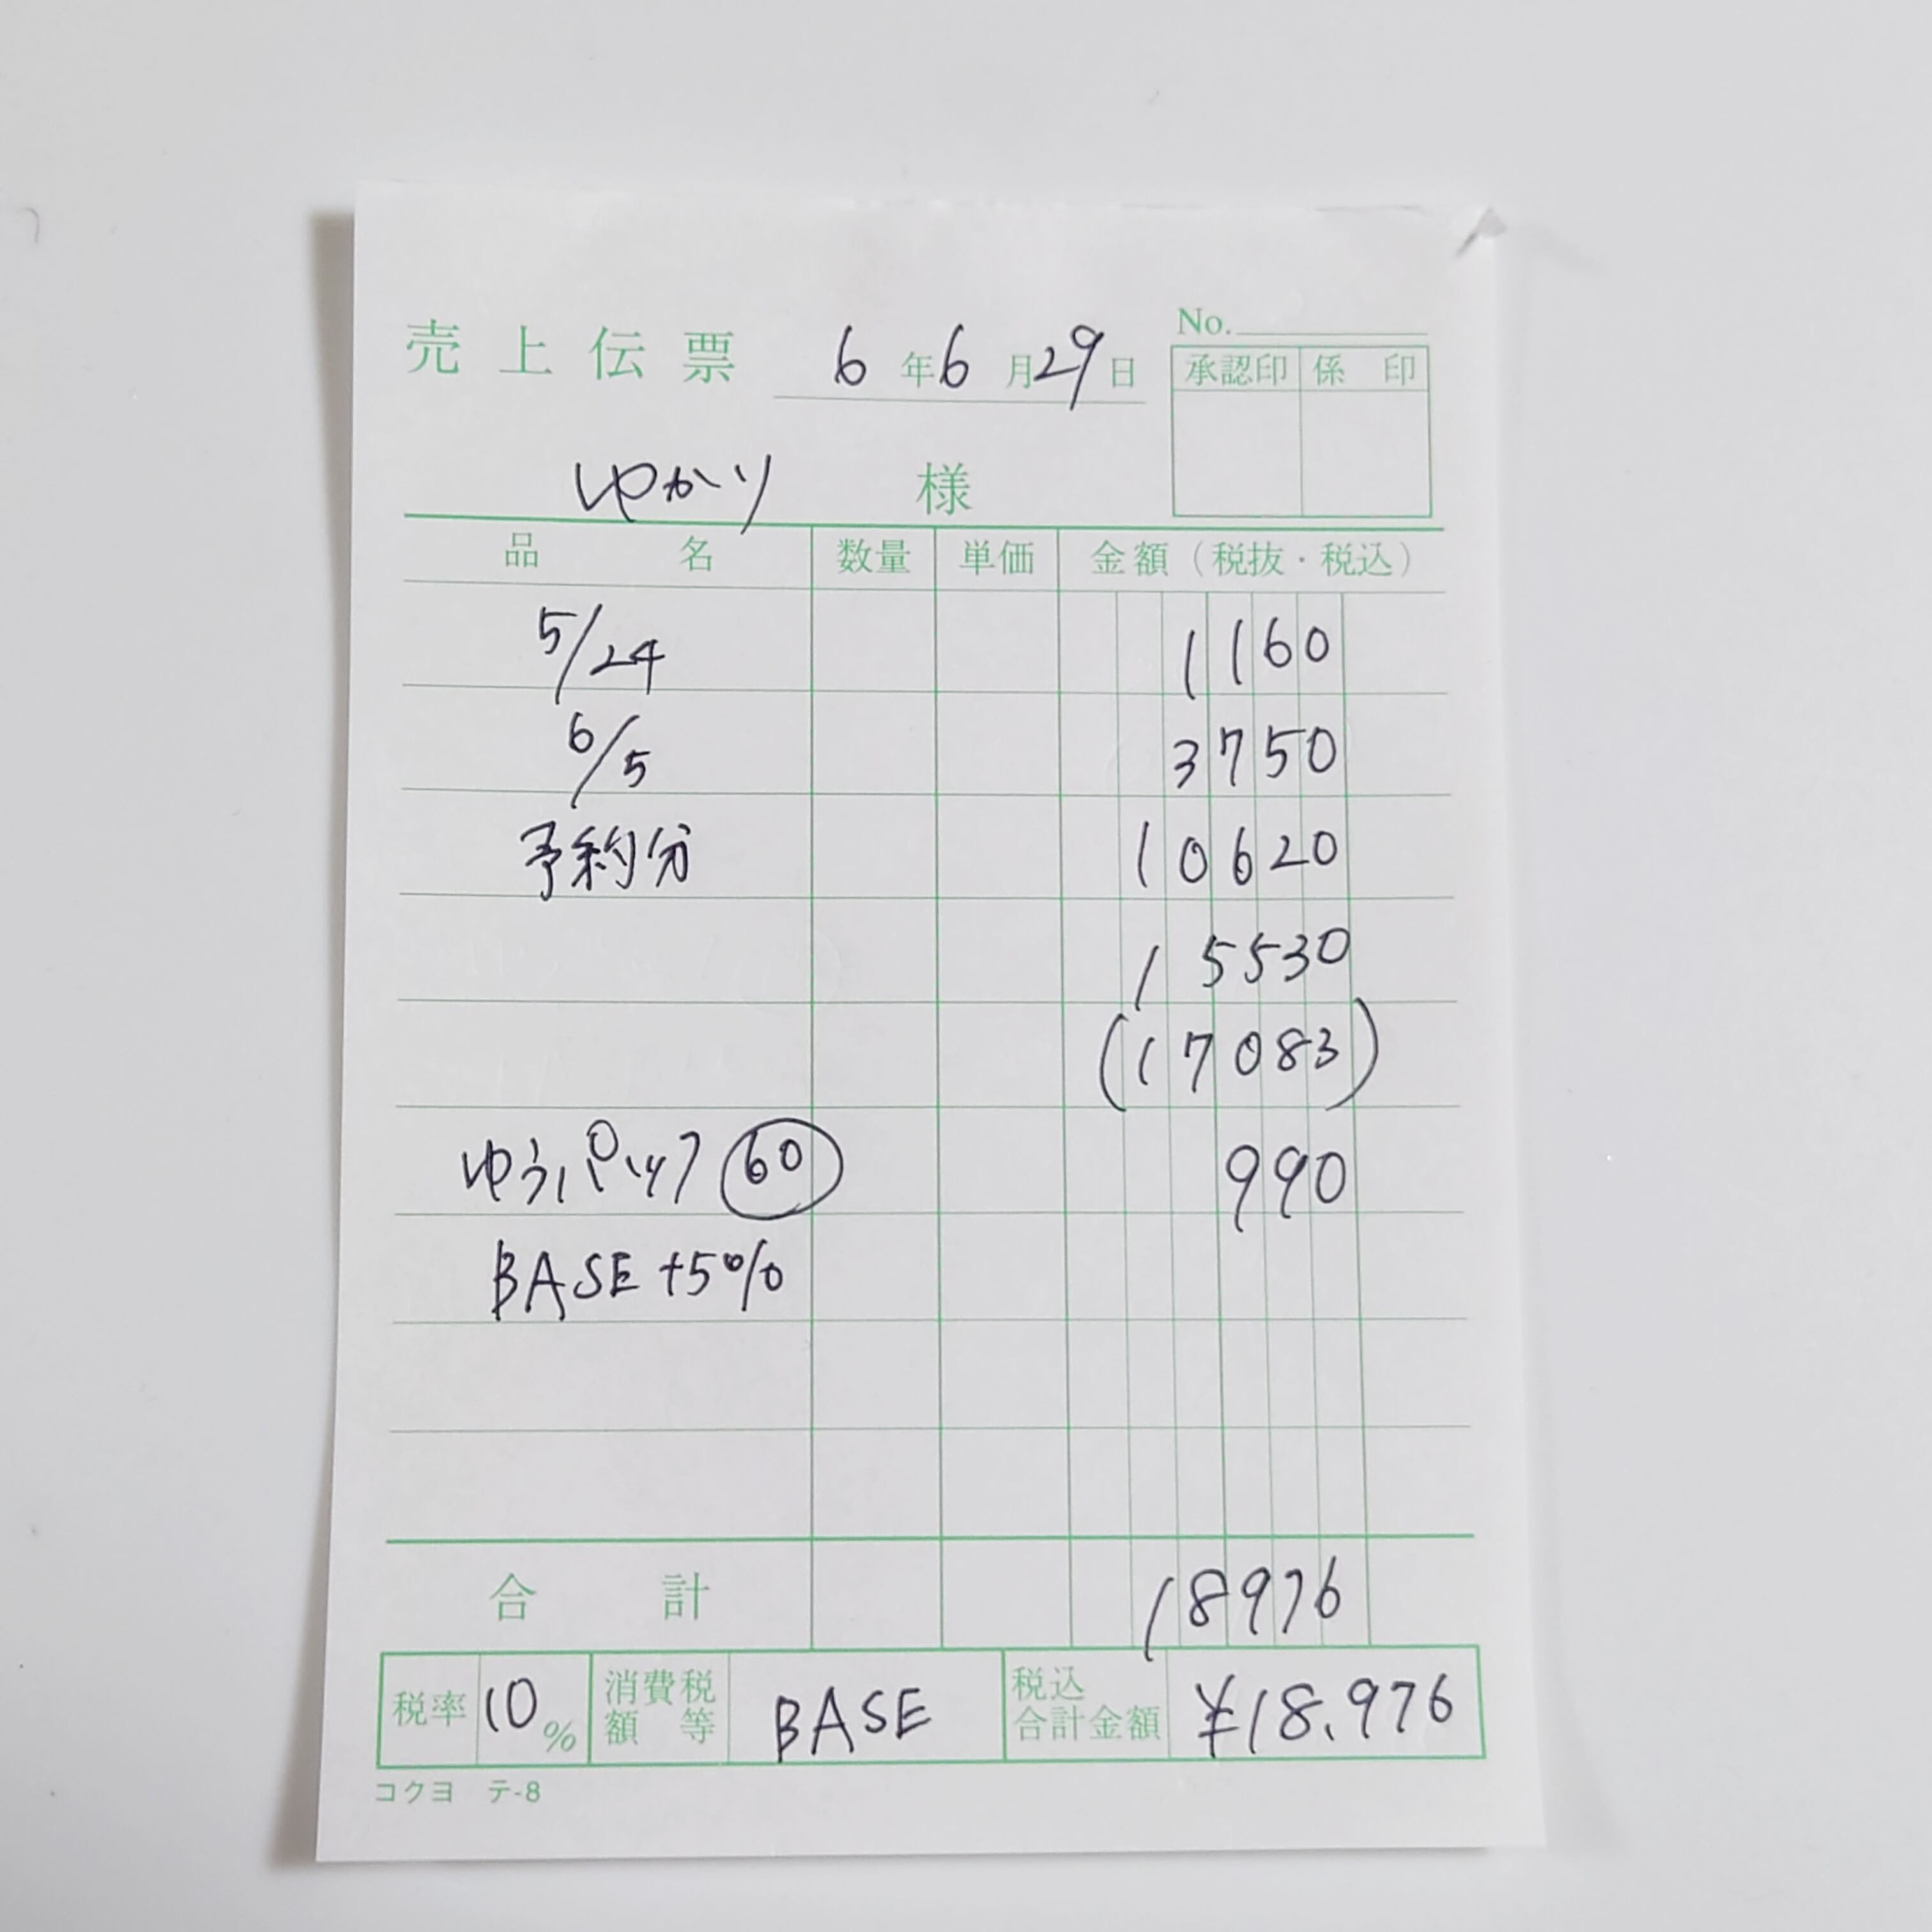 No.
売上伝票 6年6月29日
承認印 係印
ゆかり 様
品名 数量 単価 金額(税抜・税込)
5/24 1160
6/5 3750
予約分 10620
15530
(17083)
ゆうパック 60 990
BASE +5%
合計 18976
税率 10% 消費税額等 BASE 税込合計金額 ¥18,976
コクヨ テ-8